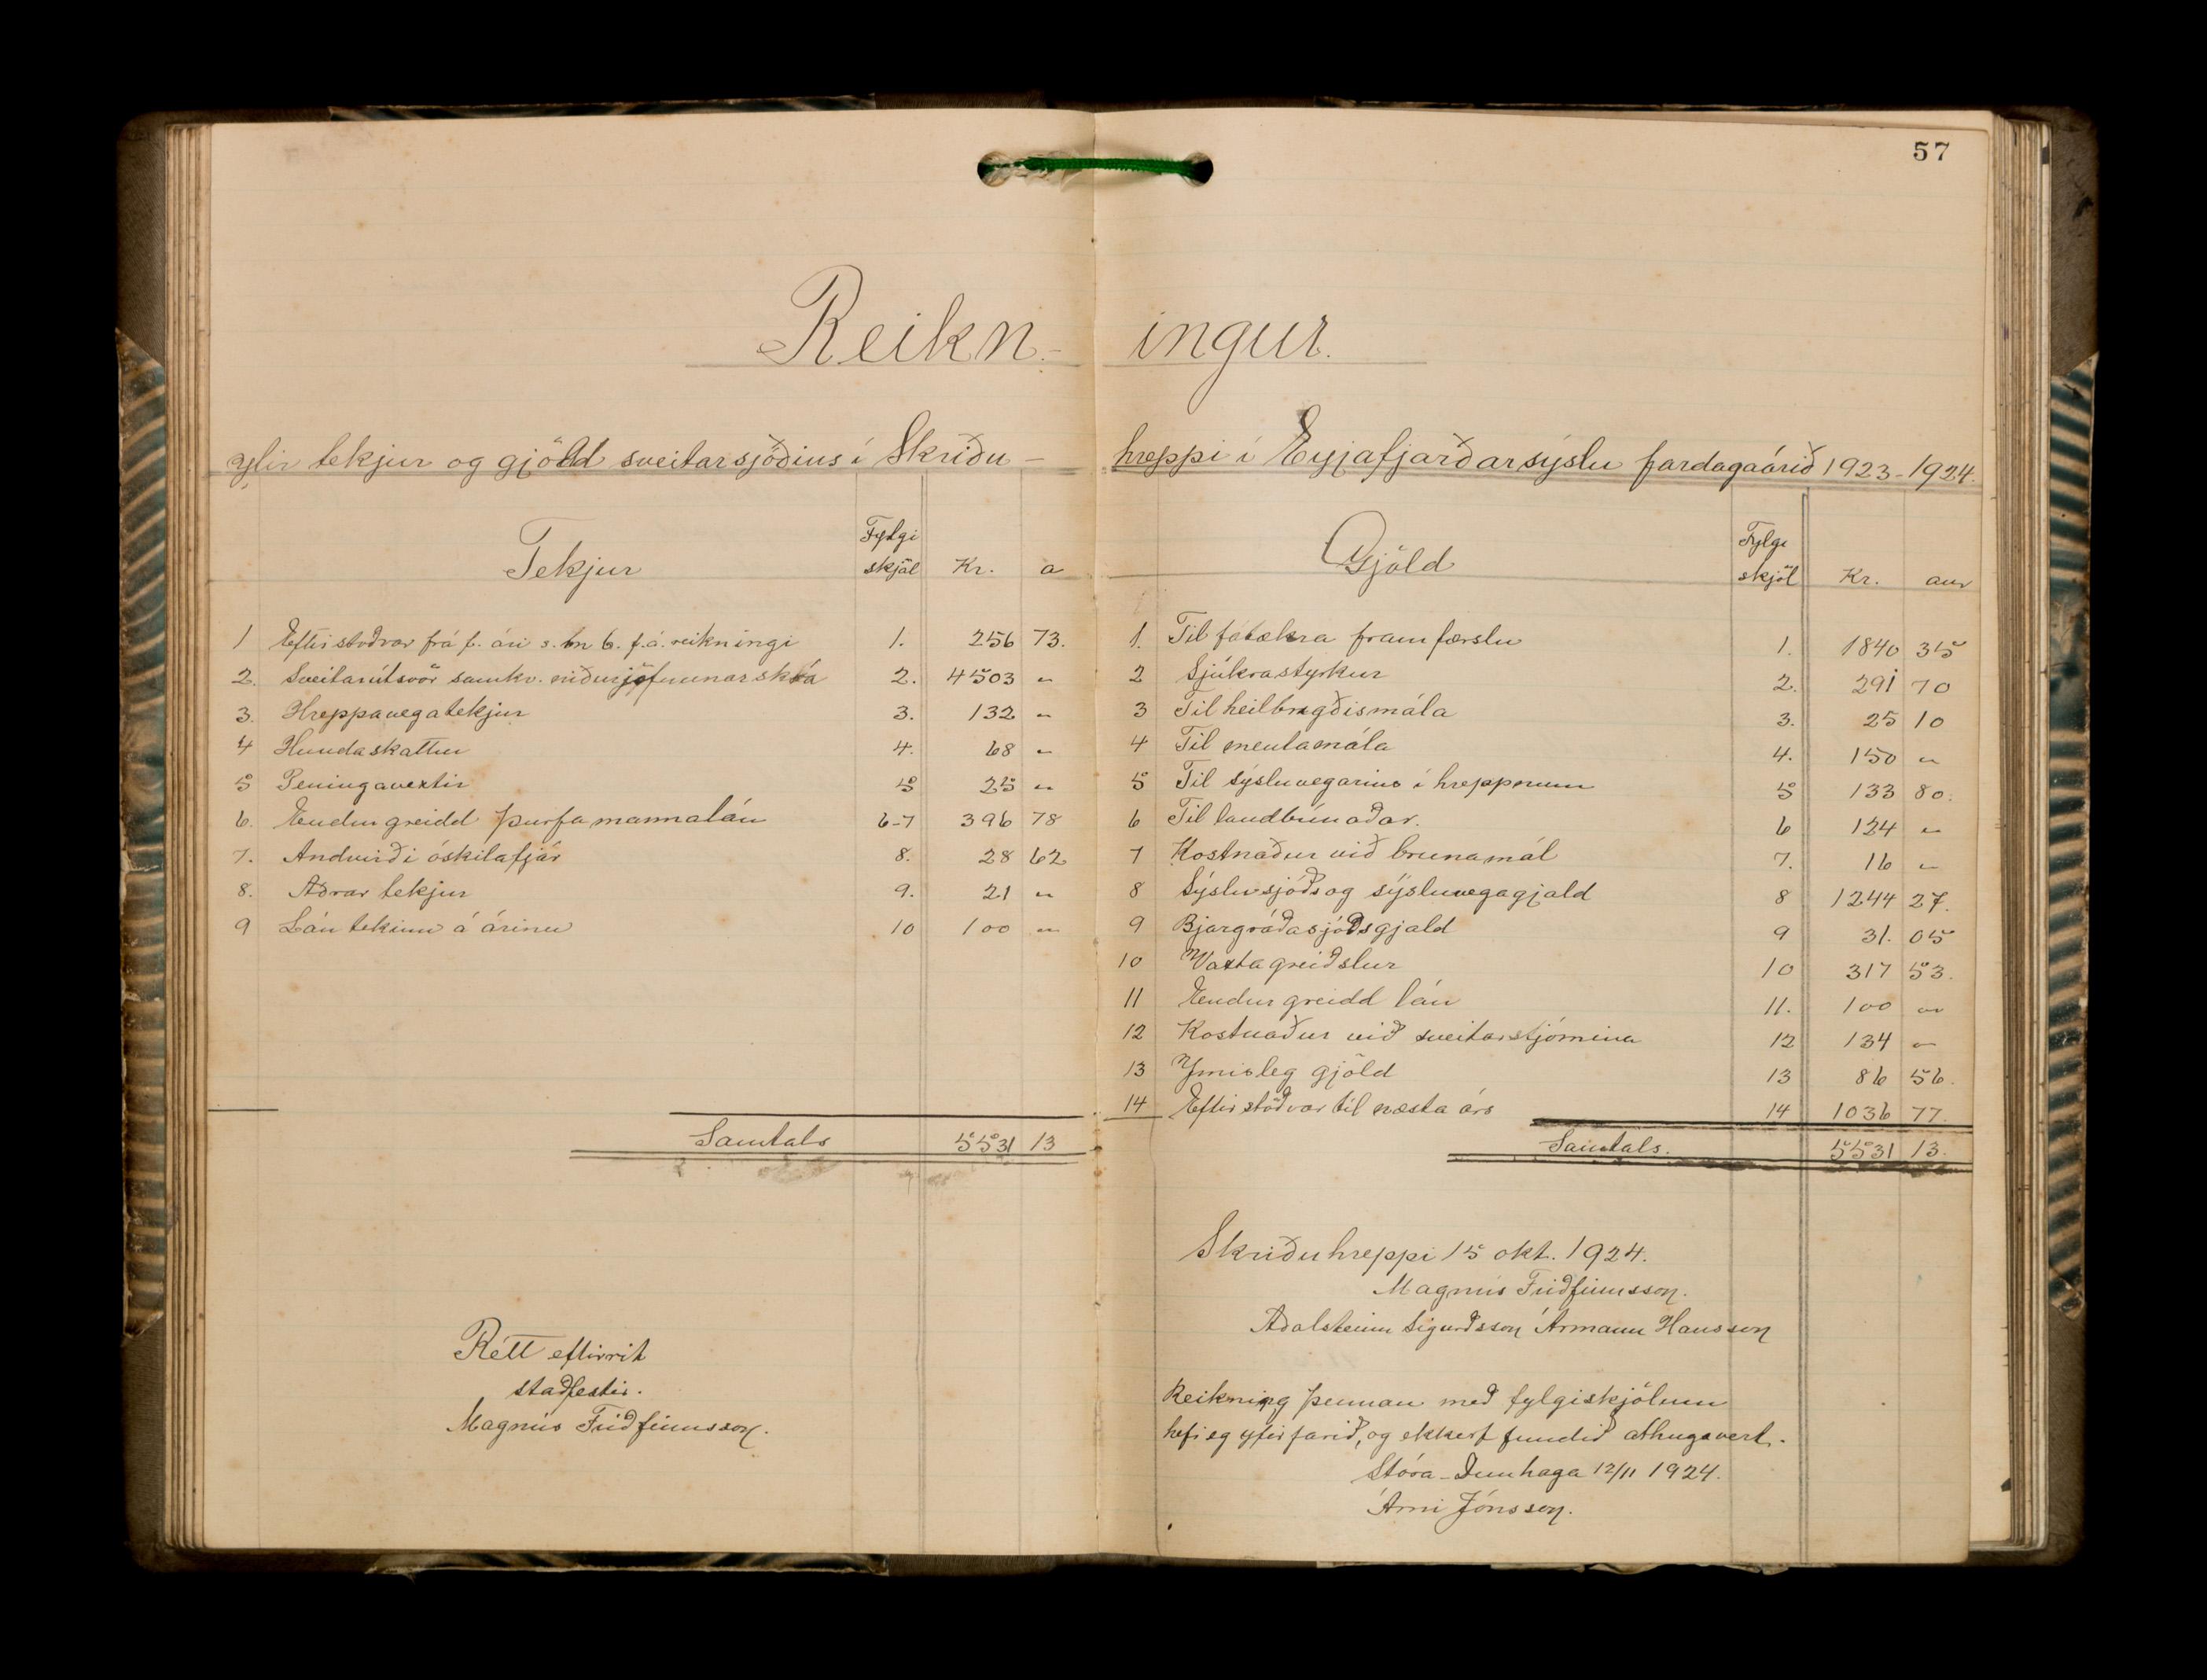 57
Reikn- ingur.
yfir tekjur og gjöld sveitarsjóðins í Skriðu-
hreppi í Eyjafjarðarsýslu fardagaárið 1923-1924.
Tekjur Fylgi skjöl Kr. a
1 Eftirstöðvar frá f. ári s. br 6. f.á. reikningi 1. 256 73.
2. Sveitarútsvör samkv. niðurjöfnunarskrá 2. 4503 "
3. Hreppavegatekjur 3. 132 "
4 Hundaskattur 4. 68 "
5 Peningavextir 5 25 "
6. Endurgreidd þurfamannalán 6-7 396 78
7. Andvirði óskilafjár 8. 28 62
8. Aðrar tekjur 9. 21 "
9 Lán tekinn á árinu 10 100 "
Samtals 5531 13
Rétt eftirrit
staðfestir.
Magnús Friðfinnsson.
Gjöld Fylgi skjöl Kr. aur
1. Til fátækra framfærslu 1. 1840 35
2 Sjúkrastyrkur 2. 291 70
3 Til heilbrigðismála 3. 25 10
4 Til mentamála 4. 150 "
5 Til sýsluvegarins í hreppnum 5 133 80.
6 Til landbúnaðar. 6 124 "
7 Kostnaður við brunamál 7. 16 "
8 Sýslusjóðs og sýsluvegagjald 8 1244 27.
9 Bjargráðasjóðsgjald 9 31. 05
10 Vaxtagreiðslur 10 317 53.
11 Endurgreidd lán 11. 100 "
12 Kostnaður við sveitarstjórnina 12 134 "
13 Ymisleg gjöld 13 86 56.
14 Eftirstöðvar til næsta árs 14 1036 77.
Samtals. 5531 13.
Skriðuhreppi 15 okt. 1924.
Magnús Friðfinnsson.
Aðalsteinn Sigurðsson Ármann Hansson
Reikning þennan með fylgiskjölum
hefi eg yfirfarið, og ekkert fundið athugavert.
Stóra-Dunhaga 12/11 1924.
Árni Jónsson.